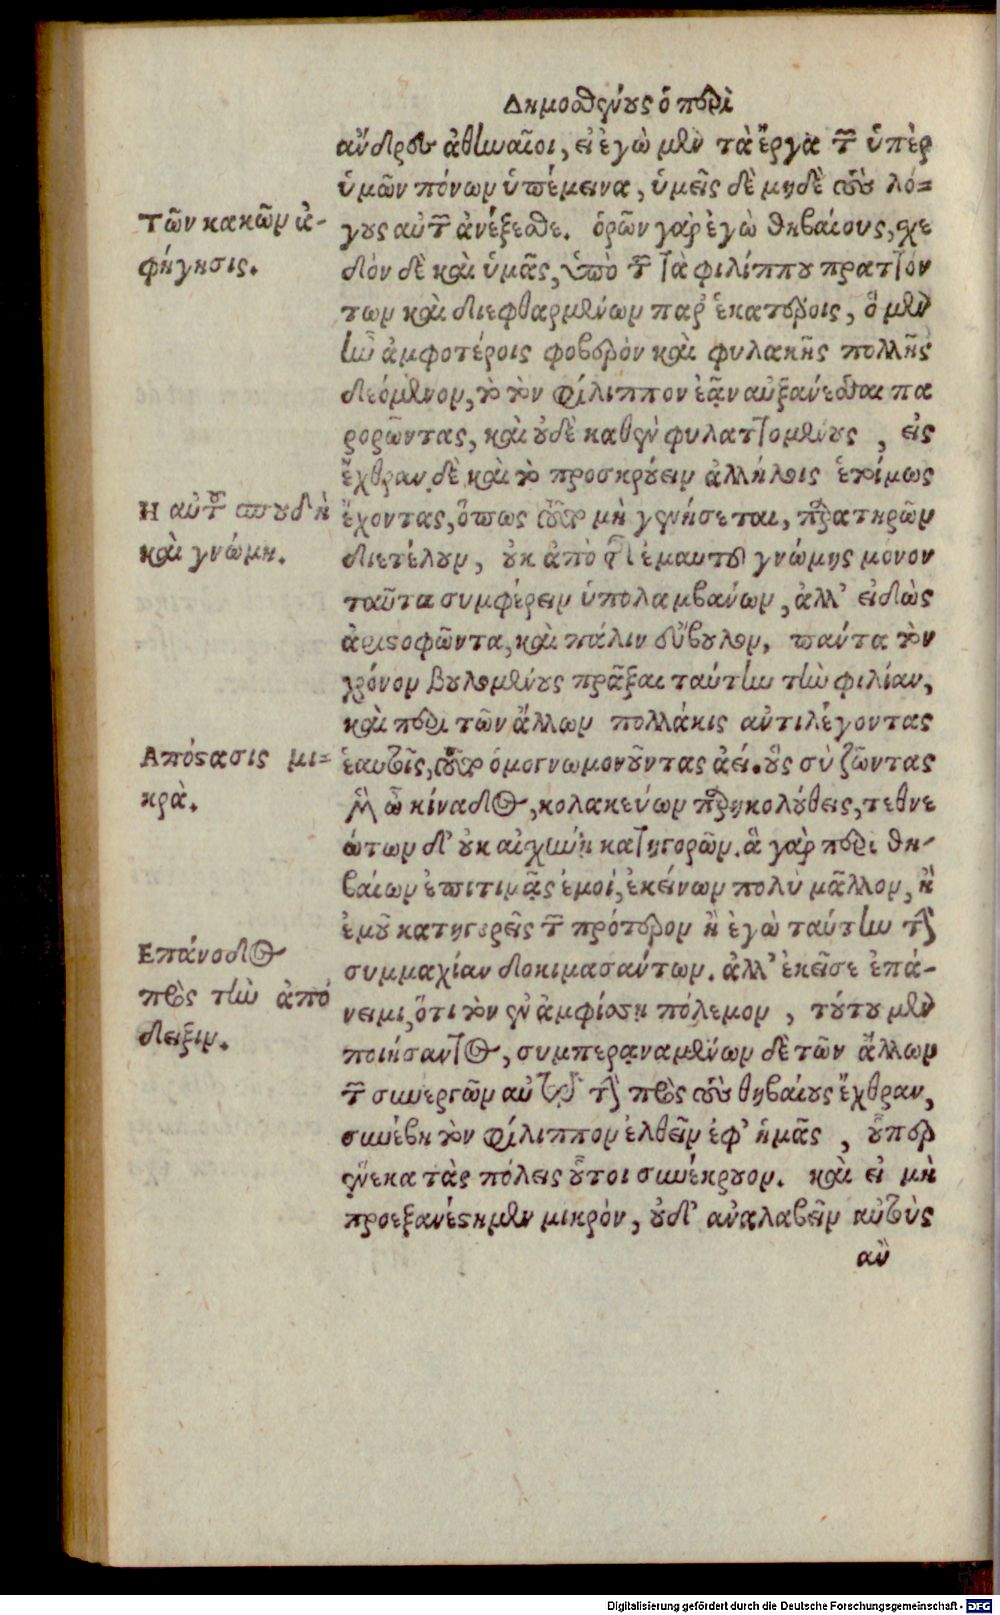 Δημοσθένους ὁ περὶ
ἄνδρες ἀθηναῖοι, εἰ ἐγὼ μὲν τὰ ἔργα τῶν ὑπὲρ
ὑμῶν πόνων ὑπέμεινα, ὑμεῖς δὲ μηδὲ τοὺς λό=
γους αὐτῶν ἀνέξεσθε. ὁρῶν γὰρ ἐγὼ θηβαίους, σχε
δὸν δὲ καὶ ὑμᾶς, ὑπὸ τῶν τὰ φιλίππου πρατ]όν
των καὶ διεφθαρμένων παρ' ἑκατέροις, ὃ μὲν
ἦν ἀμφοτέροις φοβερὸν καὶ φυλακῆς πολλῆς
δεόμενον, τὸ τὸν φίλιππον ἐᾶν αὐξάνεσθαι πα
ρορῶντας, καὶ οὐδὲ καθὲν φυλαττομένους, εἰς
ἔχθραν δὲ καὶ τὸ προσκρούειν ἀλλήλοις ἑτοίμως
ἔχοντας, ὅπως τοῦτο μὴ γενήσεται, παρατηρῶν
διετέλουν, οὐκ ἀπὸ τῆς ἐμαυτοῦ γνώμης μόνον
ταῦτα συμφέρειν ὑπολαμβάνων, ἀλλ' εἰδὼς
ἀριστοφῶντα, καὶ πάλιν εὔβουλον, πάντα τὸν
χρόνον βουλομένους πρᾶξαι ταύτην τὴν φιλίαν,
καὶ περὶ τῶν ἄλλων πολλάκις ἀντιλέγοντας
ἑαυτοῖς, τοῦτο ὁμογνωμονοῦντας ἀεί. οὓς σὺ ζῶντας
μὲν ὦ κίναδος, κολακεύων παρηκολούθεις, τεθνε
ώτων δ' οὐκ αἰσχύνῃ κατηγορῶν. ἃ γὰρ περὶ θη-
βαίων ἐπιτιμᾷς ἐμοί, ἐκείνων πολὺ μᾶλλον, ἢ
ἐμοῦ κατηγορεῖς τῶν πρότερον ἢ ἐγὼ ταύτην τὴν
συμμαχίαν δοκιμασάντων. ἀλλ' ἐκεῖσε ἐπά-
νειμι, ὅτι τὸν ἐν ἀμφίσσῃ πόλεμον, τούτου μὲν
ποιήσαντος, συμπεραναμένων δὲ τῶν ἄλλων
τῶν συνεργῶν αὐτοῦ τὴν πρὸς τοὺς θηβαίους ἔχθραν,
συνέβη τὸν φίλιππον ἐλθεῖν ἐφ' ἡμᾶς, οὗπερ
ἕνεκα τὰς πόλεις οὗτοι συνέκρουον. καὶ εἰ μὴ
προεξανέστημεν μικρὸν, οὐδ' ἀναλαβεῖν αὐτοὺς
ἂν
Τῶν κακῶν ἀ-
φήγησις.
Η αὐτοῦ σπουδὴ
καὶ γνώμη.
Απόστασις μι=
κρὰ.
Επάνοδος
πρὸς τὴν ἀπό
δειξιν.
Digitalisierung gefördert durch die Deutsche Forschungsgemeinschaft - DFG